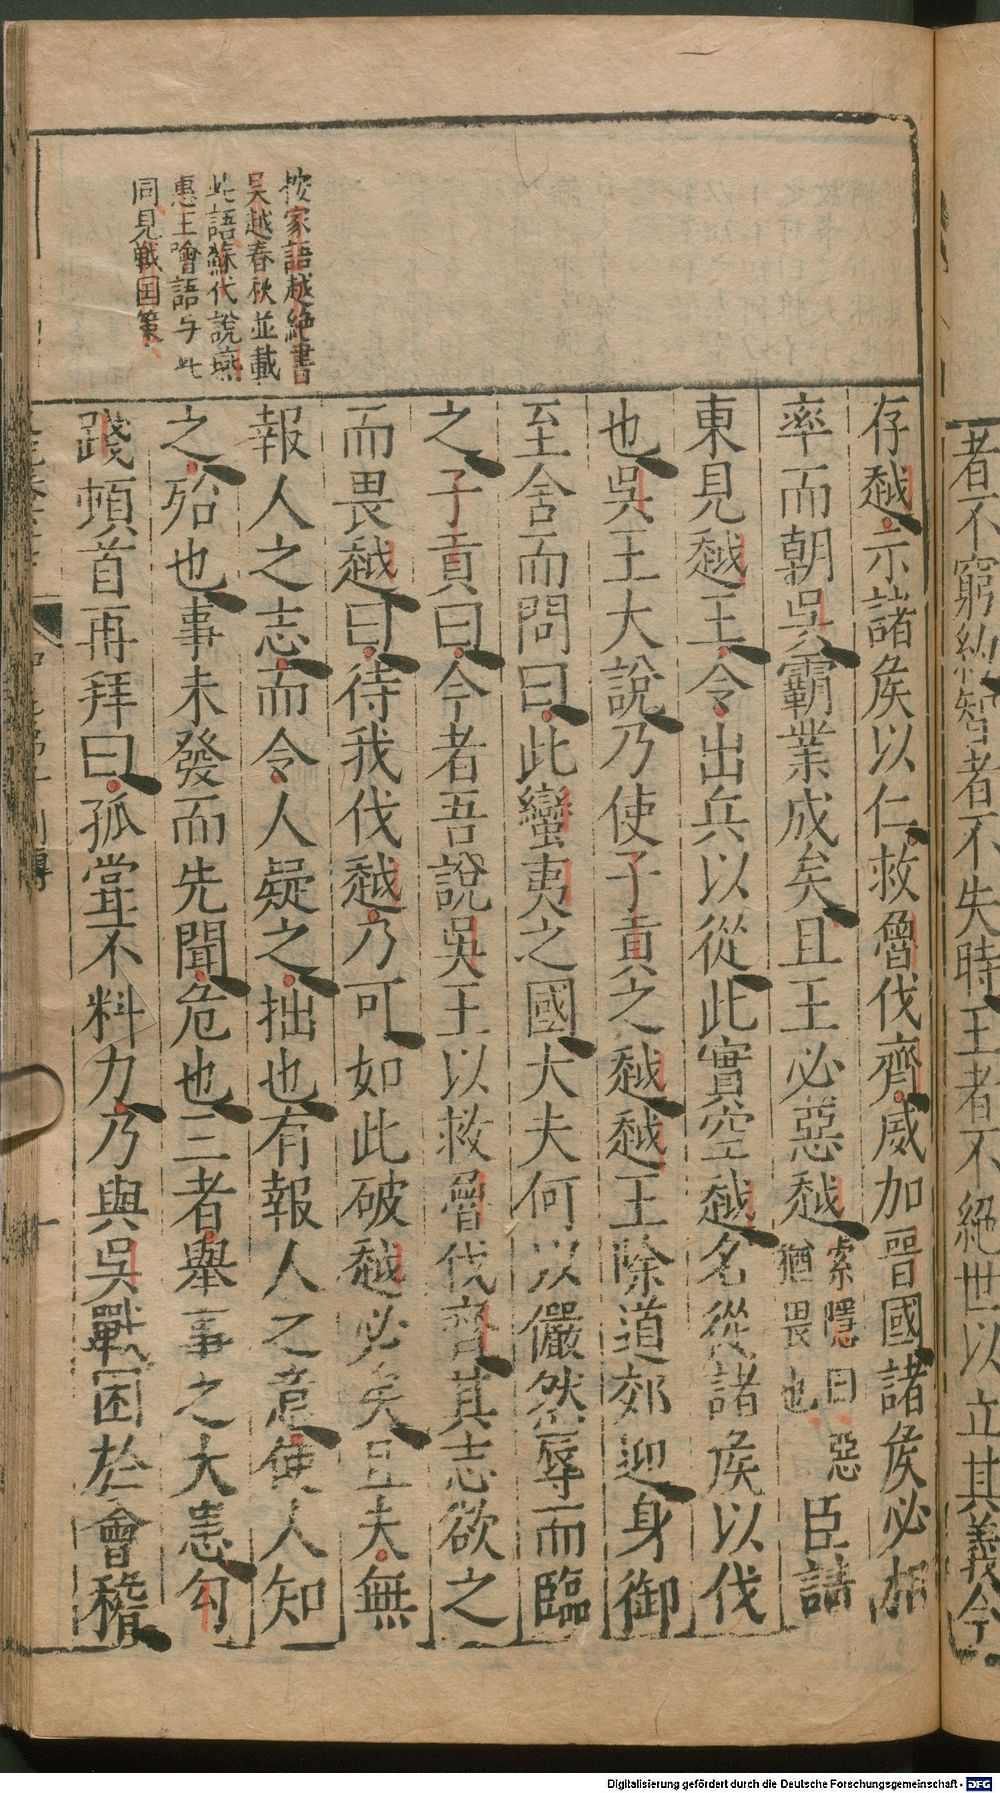 者不窮約智者不失時王者不絕世以立其義今
存越示諸侯以仁救魯伐齊威加晉國諸侯必相
率而朝吳霸業成矣且王必惡越索隱曰惡猶畏也臣請
東見越王令出兵以從此實空越名從諸侯以伐
也吳王大說乃使子貢之越越王除道郊迎身御
至舍而問曰此蠻夷之國大夫何以儼然辱而臨
之子貢曰今者吾說吳王以救魯伐齊其志欲之
而畏越曰待我伐越乃可如此破越必矣且夫無
報人之志而令人疑之拙也有報人之意使人知
之殆也事未發而先聞危也三者舉事之大患句
踐頓首再拜曰孤嘗不料力乃與吳戰困於會稽
按家語越絶書
吴越春秋並載
此語蘇代說燕
惠王噲語与此
同見戰国策
Digitalisierung gefördert durch die Deutsche Forschungsgemeinschaft - DFG